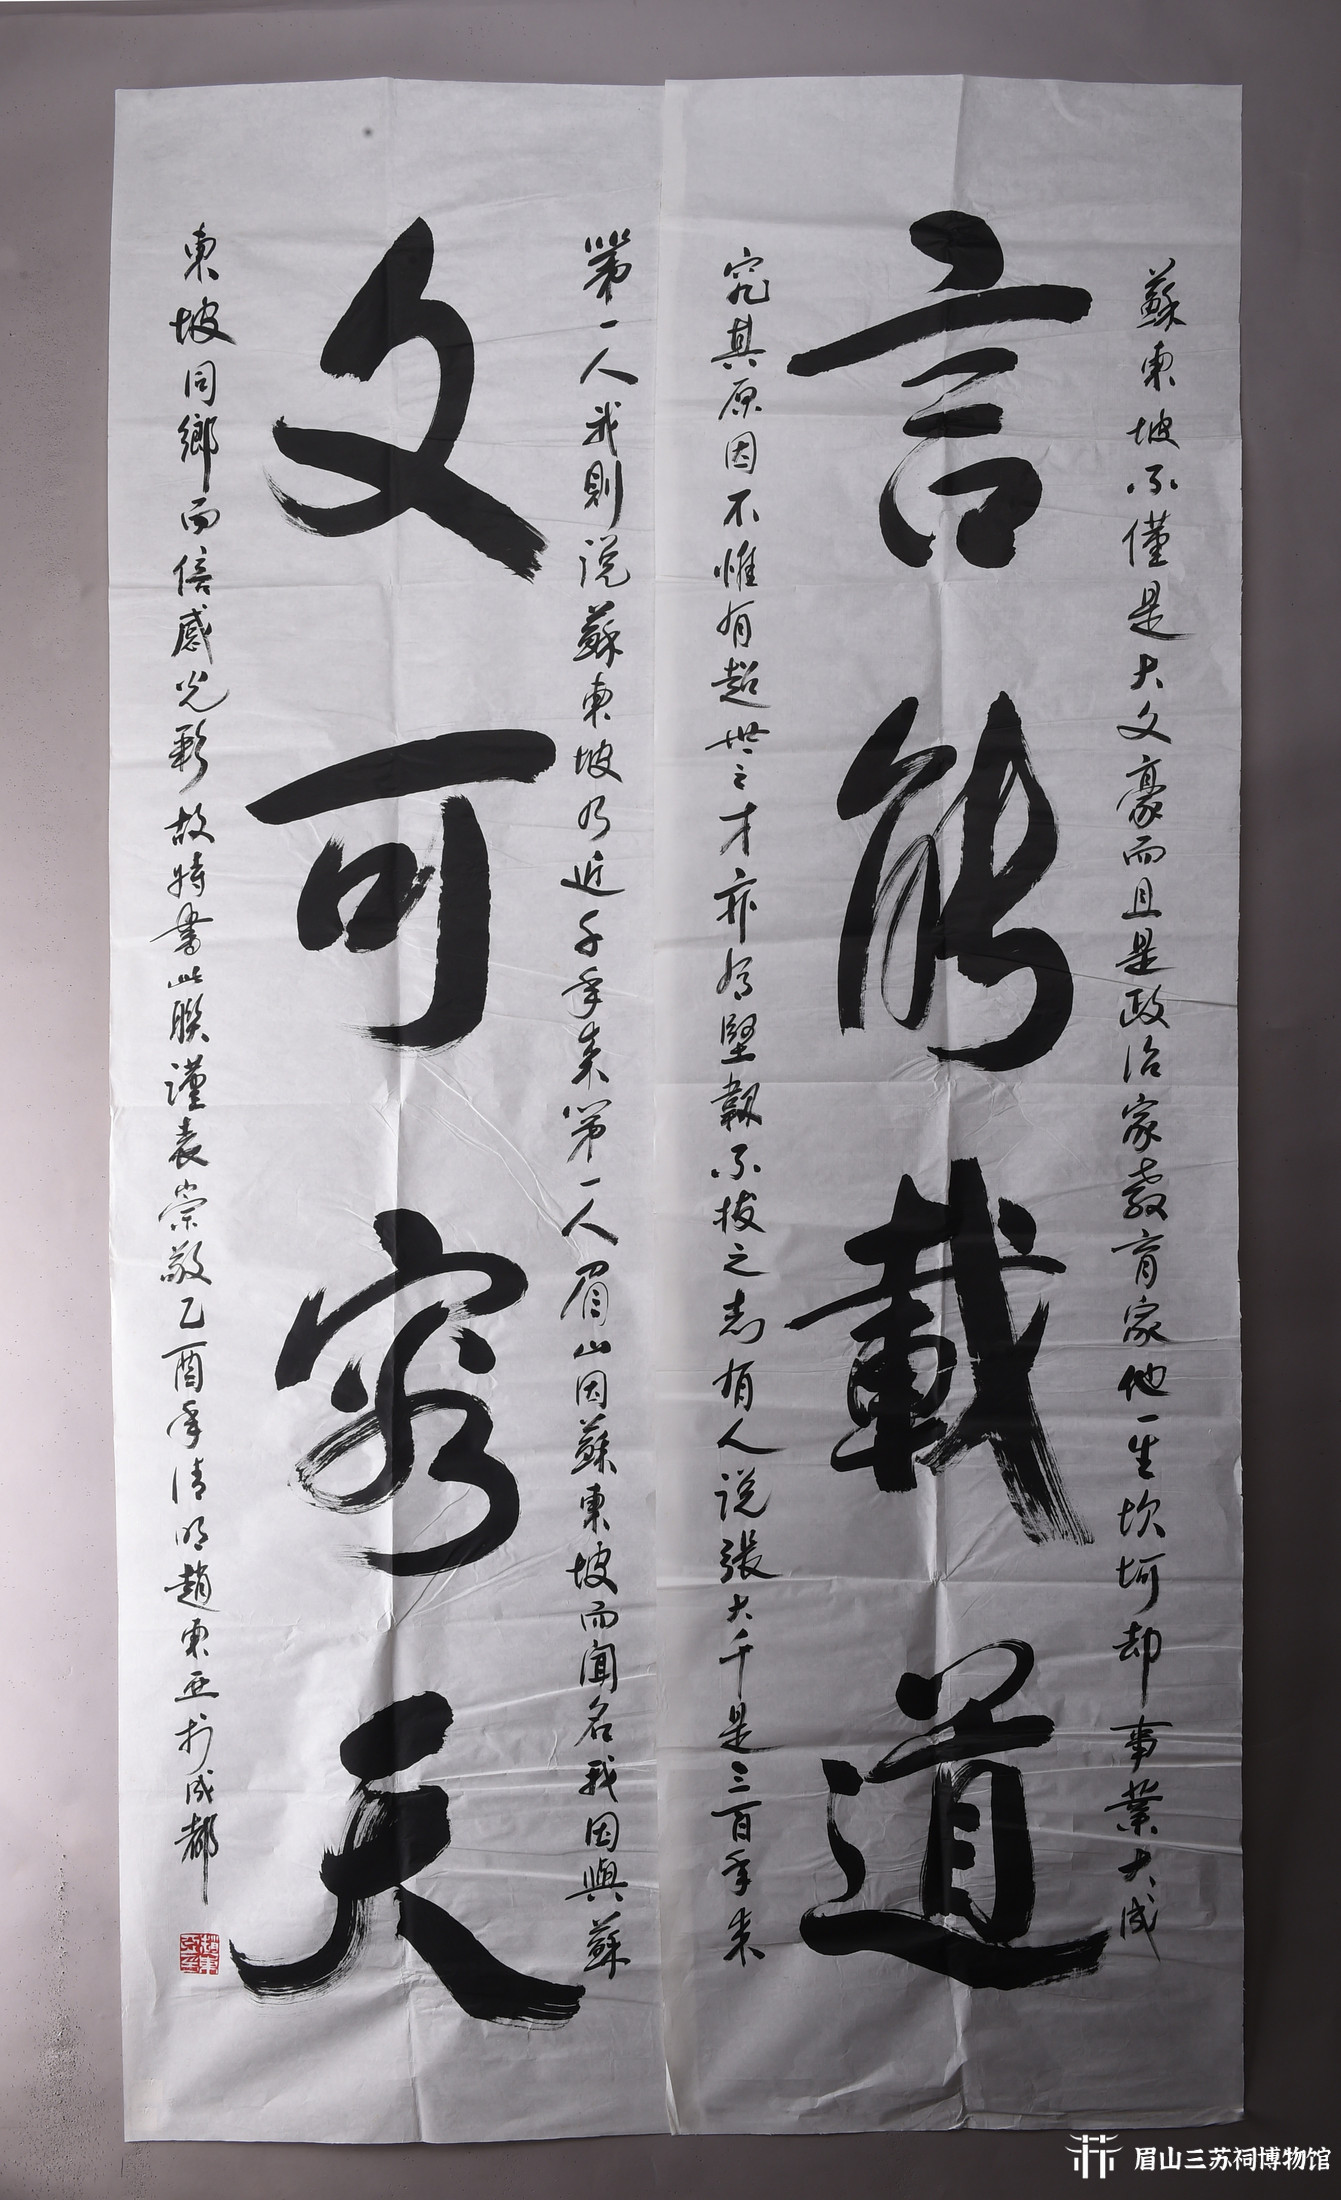 蘇東坡不僅是大文豪而且是政治家教育家他一生坎坷却事業大成
言能載道
究其原因不惟有超世之才亦有堅韌不拔之志有人说張大千是三百年来
第一人我則说蘇東坡乃近千年来第一人眉山因蘇東坡而聞名我因與蘇
文可容天
東坡同鄉而倍感光彩故特書此聯謹表崇敬乙酉年清明趙東亚於成都
眉山三苏祠博物馆